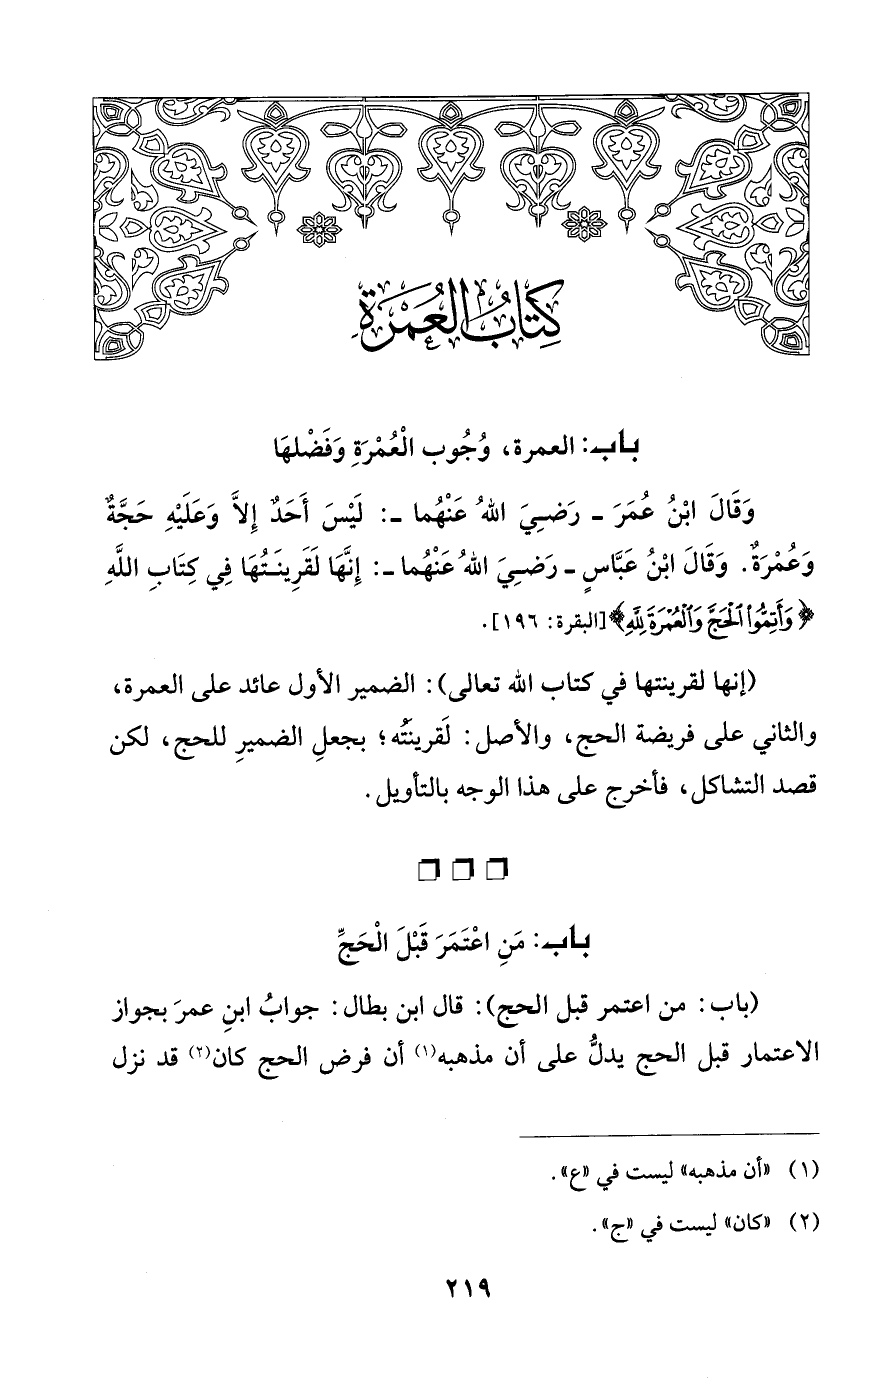 كِتَابُ الْعُمْرَةِ
باب: العمرة، وُجُوب الْعُمْرَةِ وَفَضْلِهَا
وَقَالَ ابْنُ عُمَرَ ـ رَضِيَ اللهُ عَنْهُما ـ: لَيْسَ أَحَدٌ إِلاَّ وَعَلَيْهِ حَجَّةٌ
وَعُمْرَةٌ. وَقَالَ ابْنُ عَبَّاسٍ ـ رَضِيَ اللهُ عَنْهُما ـ: إِنَّهَا لَقَرِينَتُهَا فِي كِتَابِ اللَّهِ
﴿وَأَتِمُّوا۟ ٱلْحَجَّ وَٱلْعُمْرَةَ لِلَّهِ﴾ [البقرة: ١٩٦].
(إنها لقرينتها في كتاب الله تعالى): الضمير الأول عائد على العمرة،
والثاني على فريضة الحج، والأصل: لَقرينتُه؛ بجعلِ الضميرِ للحج، لكن
قصد التشاكل، فأخرج على هذا الوجه بالتأويل.
باب: مَنِ اعْتَمَرَ قَبْلَ الْحَجِّ
(باب: من اعتمر قبل الحج): قال ابن بطال: جوابُ ابنِ عمرَ بجواز
الاعتمار قبل الحج يدلُّ على أن مذهبه(١) أن فرض الحج كان(٢) قد نزل
(١) «أن مذهبه» ليست في «ع».
(٢) «كان» ليست في «ج».
٢١٩